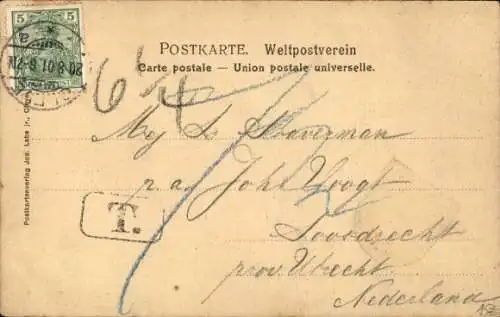 5
20.8.01.6-7N
POSTKARTE. Weltpostverein
Carte postale — Union postale universelle.
6 1/4
Mej Staverman
p. a. Joh. Voogt
Loosdrecht
prov. Utrecht
Nederland
T.
Postkartenverlag Jos.